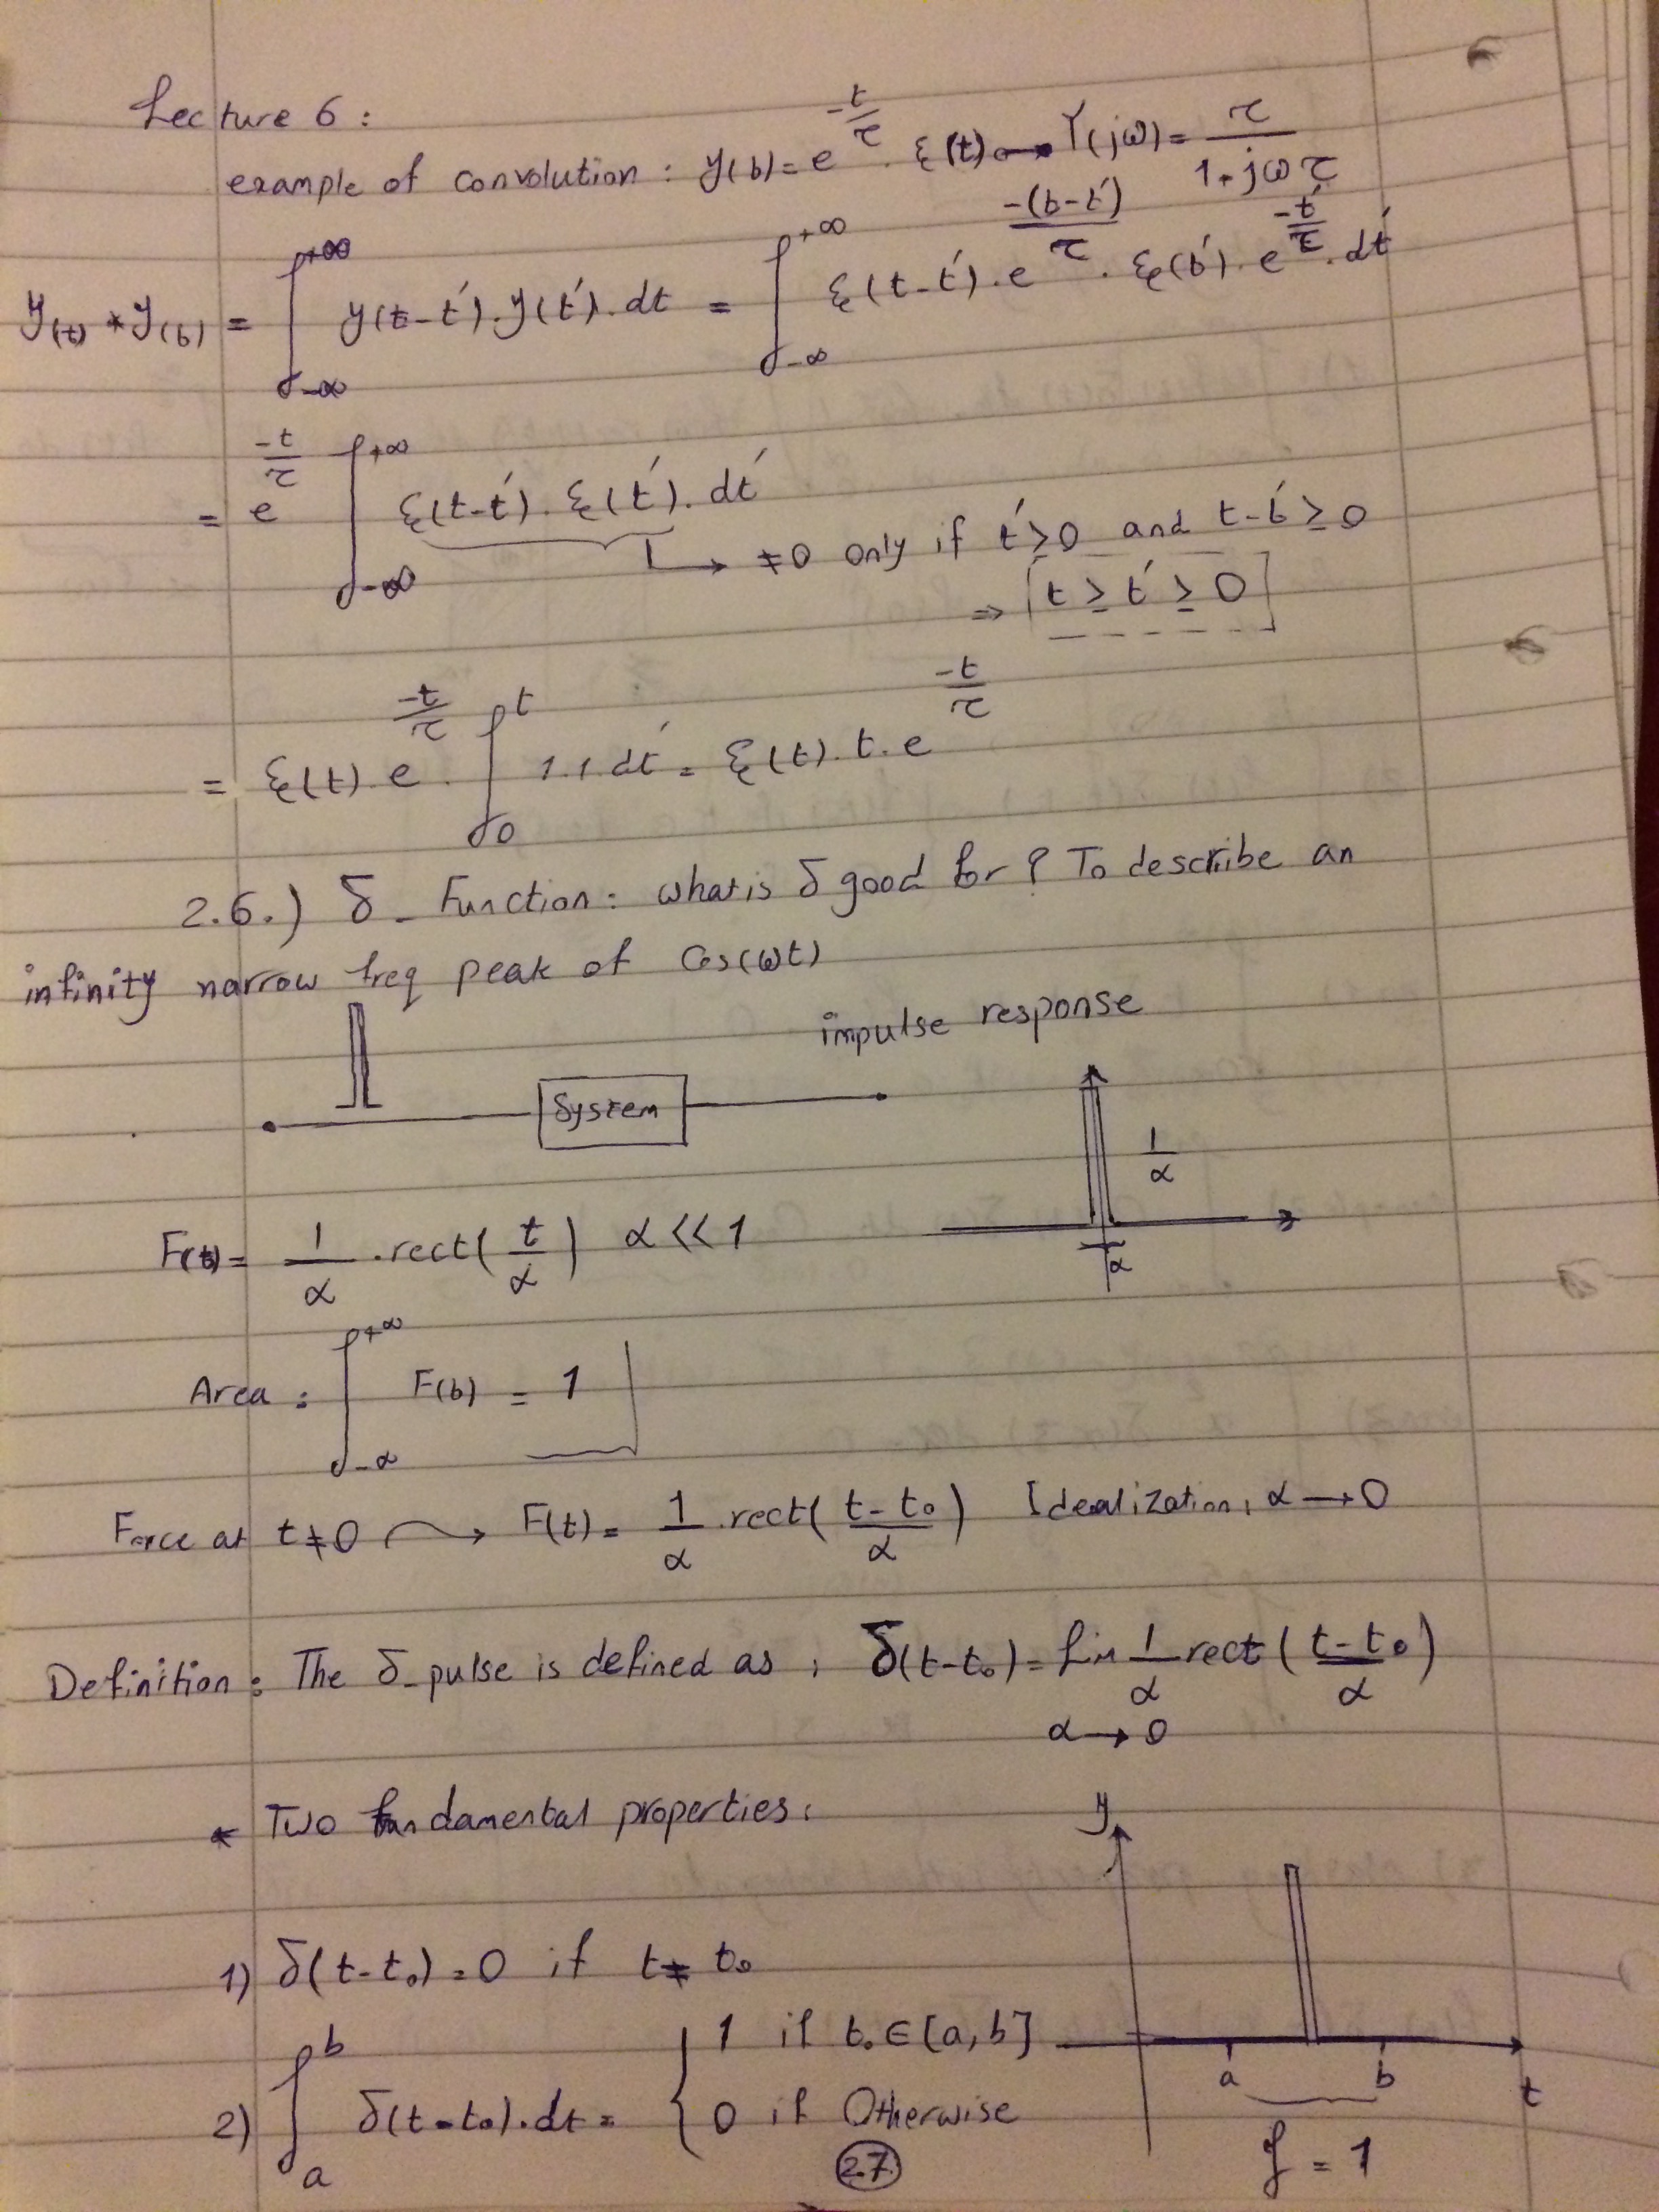 Lecture 6 :
example of convolution : y(t) = e^(-t/τ) . ξ(t) ∘—• Y(jω) = τ / (1 + jωτ)
y(t) * y(t) = ∫_{-∞}^{+∞} y(t-t') . y(t') . dt = ∫_{-∞}^{+∞} ξ(t-t') . e^(-(t-t')/τ) . ξ(t') . e^(-t'/τ) . dt'
= e^(-t/τ) ∫_{-∞}^{+∞} ξ(t-t') . ξ(t') . dt'
↳ ≠0 only if t' ≥ 0 and t-t' ≥ 0
⇒ t ≥ t' ≥ 0
= ξ(t) . e^(-t/τ) . ∫_0^t 1.1 dt' = ξ(t) . t . e^(-t/τ)
2.6.) δ_ Function : what is δ good for ? To describe an
infinity narrow freq peak of Cos(ωt)
impulse response
System
1/α
F(t) = 1/α . rect( t/α ) α << 1
α
Area : ∫_{-α}^{+∞} F(t) = 1
Force at t ≠ 0 → F(t) = 1/α . rect( (t-t₀)/α ) Idealization, α → 0
Definition : The δ_pulse is defined as : δ(t-t₀) = Lim 1/α rect( (t-t₀)/α )
α → 0
* Two fundamental properties :
y
1) δ(t-t₀) = 0 if t ≠ t₀
2) ∫_a^b δ(t-t₀) . dt = { 1 if t₀ ∈ [a, b]
0 if Otherwise
a b t
∫ = 1
27